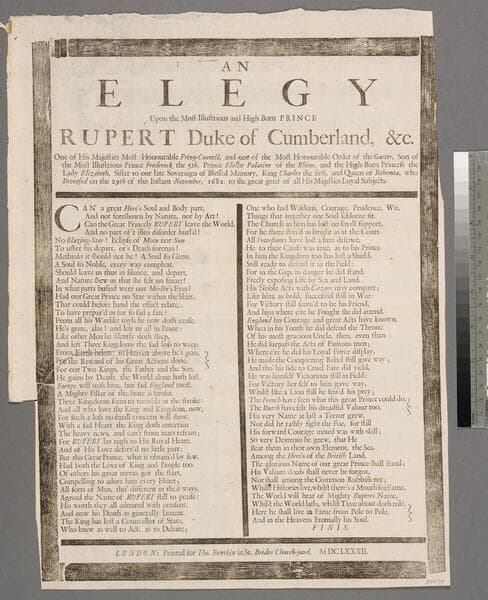 AN
ELEGY
Upon the Most Illustrious and High Born PRINCE
RUPERT Duke of Cumberland, &c.
One of His Majesties Most Honourable Privy-Council, and one of the Most Honourable Order of the Garter, Son of
the Most Illustrious Prince Frederick the 5th, Prince Elector Palatine of the Rhine, and the High-Born Princess the
Lady Elizabeth, Sister to our late Soveraign of Blessed Memory, King Charles the first, and Queen of Bohemia, who
Deceased on the 29th of this Instant November, 1682. to the great grief of all His Majesties Loyal Subjects.
CAN a great Hero's Soul and Body part,
And not foreshown by Nature, nor by Art!
Can the Great Princely RUPERT leave the World,
And no part of't into disorder hurl'd!
No Blazing-Star! Eclipse of Moon nor Sun
To usher his depart, or's Death forerun!
Methinks it should not be! A Soul so Great,
A Soul so Noble, every way compleat,
Should leave us thus in silence, and depart,
And Nature shew us that she felt no smart!
In what parts busied were our Merlin's Eyes!
Had our Great Prince no Star within the Skies,
That could before hand the effect relate,
To have prepar'd us for so sad a fate!
From all his Warlike toyls he now doth cease,
He's gone, alas! and left us all in Peace:
Like other Men he silently doth sleep,
And left Three Kingdoms the sad loss to weep.
From Earth below, to Heaven above he's gon,
For the Reward of his Great Actions done,
For our Two Kings, the Father and the Son.
He gains by Death, the World alone hath lost,
Europe will miss him, but sad England most.
A Mighty Pillar of the State is stroke,
Three Kingdoms seem to tremble at the stroke:
And all who love the King and Kingdom, now,
For such a loss no small concern will show,
With a sad Heart the King doth entertain
The heavy news, and can't from tears refrain;
For RUPERT lay nigh to His Royal Heart,
And of His Love deserv'd no little part:
But this Great Prince, what is obtain'd by few,
Had both the Love of King and People too.
Of others his great merits got the start,
Compelling to adore him every Heart;
All sorts of Men, tho' different in their ways,
Agreed the Name of RUPERT still to praise:
His worth they all admired with consent,
And now his Death as generally lament.
The King has lost a Councellor of State,
Who knew as well to Act, as to Debate;
One who had Wisdom, Courage, Prudence, Wit,
Things that together one Soul seldome fit.
The Church in him has lost no small support,
For he there shin'd as bright as at the Court.
All Protestants have lost a sure defence,
He to their Cause was true, as to his Prince.
In him the Kingdom too has lost a Shield,
Still ready to defend it in the Field:
For in the Gap, in danger he did stand,
Freely exposing Life by Sea and Land.
His Noble Acts with Cæsars may compare;
Like him, as bold, successfull still in War:
For Victory still seem'd to be his Friend,
And him where e're he Fought she did attend.
England his Courage and great Acts have known,
When in his Youth he did defend the Throne
Of his most gracious Uncle, then, even then
He did surpass the Acts of Famous men;
Where e're he did his Loyal Force display,
He made the Conquering Rebel still give way;
And tho his side to Cruel Fate did yield,
He was himself Victorious still in Field:
For Victory her self to him gave way,
Whilst like a Lion still he seiz'd his prey;
The French have seen what this great Prince could do,
The Dutch have felt his dreadful Valour too,
His very Name at last a Terror grew.
Nor did he rashly fight the Foe, for still
His forward Courage mixed was with skill;
So very Dextrous he grew, that He
Beat them in their own Element, the Sea.
Among the Hero's of the British Land,
The glorious Name of our great Prince shall stand;
His Valiant deeds shall never be forgot,
Nor shall among the Common Rubbish rot;
Whilst Histories live, whilst there's a Mouth for Fame,
The World will hear of Mighty Ruperts Name,
Whilst the World lasts, whilst Time about doth role,
Here he shall live in Fame from Pole to Pole,
And in the Heavens Eternally his Soul.
FINIS.
LONDON: Printed for Tho. Benskin in St. Brides Church-yard. MDCLXXXII.